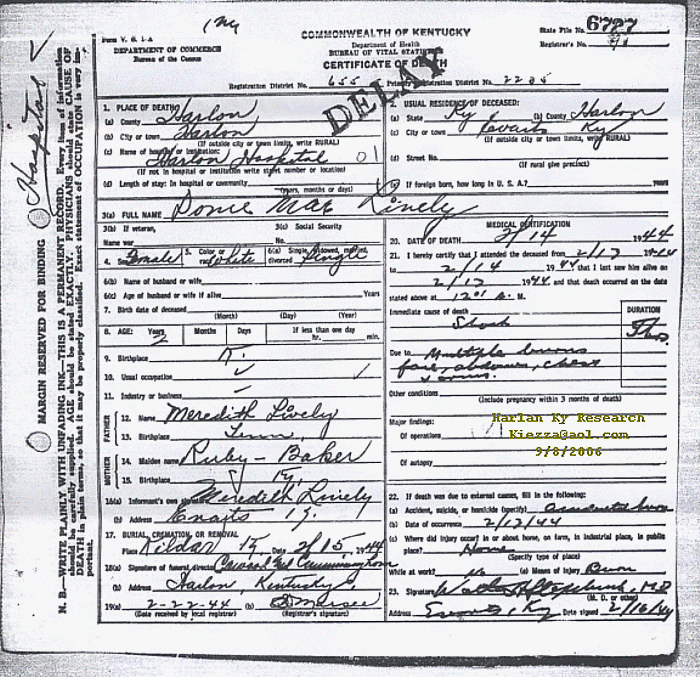 Form V. S. 1-A
DEPARTMENT OF COMMERCE
Bureau of the Census
COMMONWEALTH OF KENTUCKY
Department of Health
BUREAU OF VITAL STATISTICS
CERTIFICATE OF DEATH
State File No. 6727
Registrar's No.
Registration District No. 655 Primary Registration District No. 2285
DELAY
Hospital
MARGIN RESERVED FOR BINDING
N. B.—WRITE PLAINLY WITH UNFADING INK—THIS IS A PERMANENT RECORD. Every item of information
should be carefully supplied. AGE should be stated EXACTLY. PHYSICIANS should state CAUSE OF
DEATH in plain terms, so that it may be properly classified. Exact statement of OCCUPATION is very im-
portant.
1. PLACE OF DEATH
(a) County Harlan
(b) City or town Harlan
(If outside city or town limits, write RURAL)
(c) Name of hospital or institution:
Harlan Hospital 01
(If not in hospital or institution write street number or location)
(d) Length of stay: In hospital or community
(years, months or days)
2. USUAL RESIDENCE OF DECEASED:
(a) State Ky (b) County Harlan
(c) City or town Ky
(If outside city or town limits, write RURAL)
(d) Street No.
(If rural give precinct)
(e) If foreign born, how long in U. S. A.? years
3(a) FULL NAME Donie Mae Lively
3(b) If veteran,
Name war
3(c) Social Security
No.
4. Sex Female 5. Color or race White 6(a) Single, widowed, married, divorced Single
6(b) Name of husband or wife
6(c) Age of husband or wife if alive Years
7. Birth date of deceased
(Month) (Day) (Year)
8. AGE: Years 2 Months Days If less than one day
hr. min.
9. Birthplace K.
10. Usual occupation
11. Industry or business
FATHER
12. Name Meredith Lively
13. Birthplace Tenn.
MOTHER
14. Maiden name Ruby - Baker
15. Birthplace Ky.
16(a) Informant's own signature Meredith Lively
(b) Address
17. BURIAL, CREMATION, OR REMOVAL
Place Kildav Ky, Date 2/15, 1944
18(a) Signature of funeral director
(b) Address Harlan, Kentucky
19(a) 2-22-44 (b)
(Date received by local registrar) (Registrar's signature)
MEDICAL CERTIFICATION
20. DATE OF DEATH 2/14 1944
21. I hereby certify that I attended the deceased from 2/12 1944
to 2/14 1944 that I last saw him alive on
2/13 1944 and that death occurred on the date
stated above at 1201 A. M.
Immediate cause of death
Shock
DURATION
Due to Multiple burns
face, abdomen, chest
&arms.
Other conditions
(Include pregnancy within 3 months of death)
Major findings:
Of operations
Of autopsy
Harlan Ky Research
Kiezza@aol.com
9/8/2006
22. If death was due to external causes, fill in the following:
(a) Accident, suicide, or homicide (specify) Accidental burn
(b) Date of occurrence 2/12/44
(c) Where did injury occur? In or about home, on farm, in industrial place, in public
place? Home
(Specify type of place)
While at work? no (e) Means of injury Burn
23. Signature M.D.
(M. D. or other)
Address Evarts, Ky Date signed 2/16/44